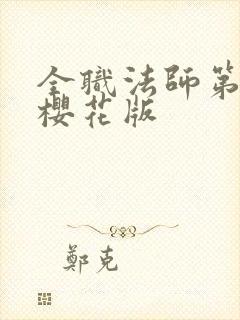 全職法師第
櫻花版
鄭克